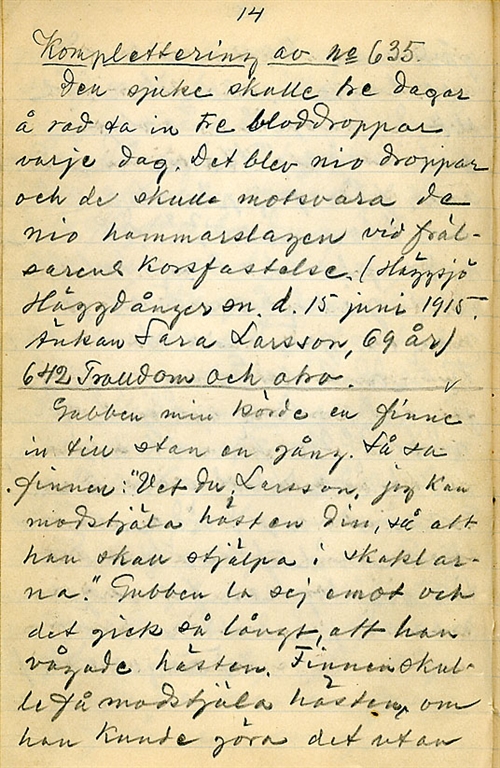 14
Komplettering av № 635.
Den sjuke skulle tre dagar
å rad ta in tre bloddroppar
varje dag. Det blev nio droppar
och de skulle motsvara de
nio hammarslagen vid fräl-
sarens korsfästelse. (Häggsjö
Häggdånger sn. d. 15 juni 1915.
Änkan Sara Larsson, 69 år)
642 Trolldom och otro.
Gubben min körde en finne
in till stan en gång. Så sa
finnen: "Vet du, Larsson, jag kan
modstjäla hästen din, så att
han skall stjälpa i skaklar-
na." Gubben la sej emot och
det gick så långt, att han
vågade hästen. Finnen skul-
le få modstjäla hästen, om
han kunde göra det utan